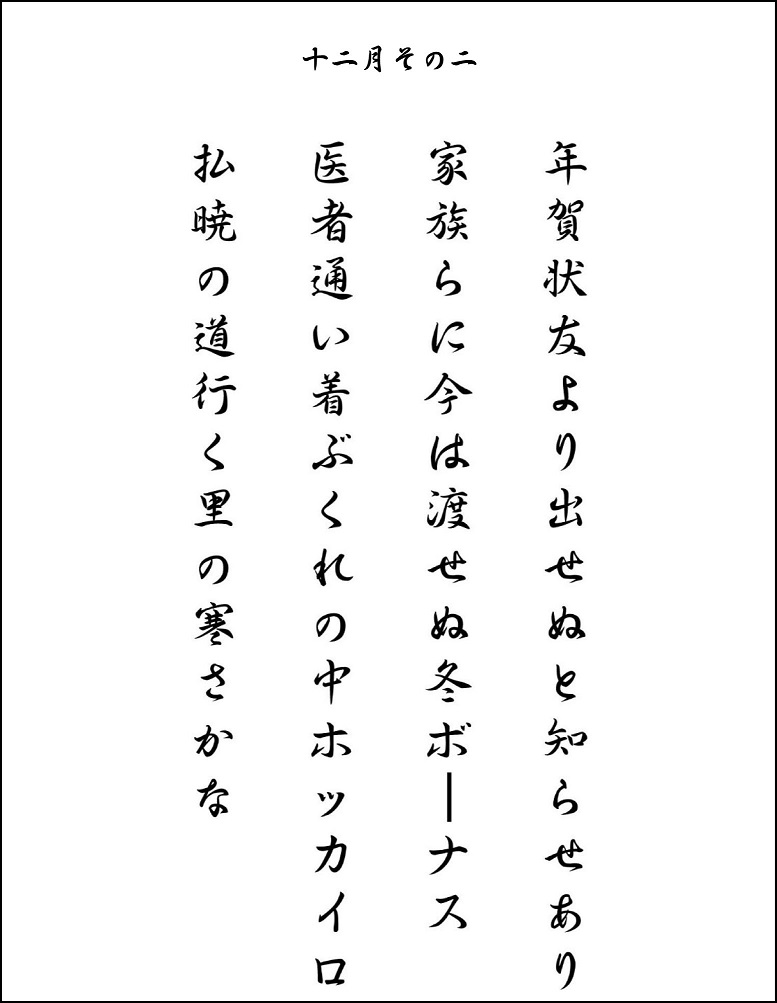 十二月その二
年賀状友より出せぬと知らせあり
家族らに今は渡せぬ冬ボーナス
医者通い着ぶくれの中ホッカイロ
払暁の道行く里の寒さかな